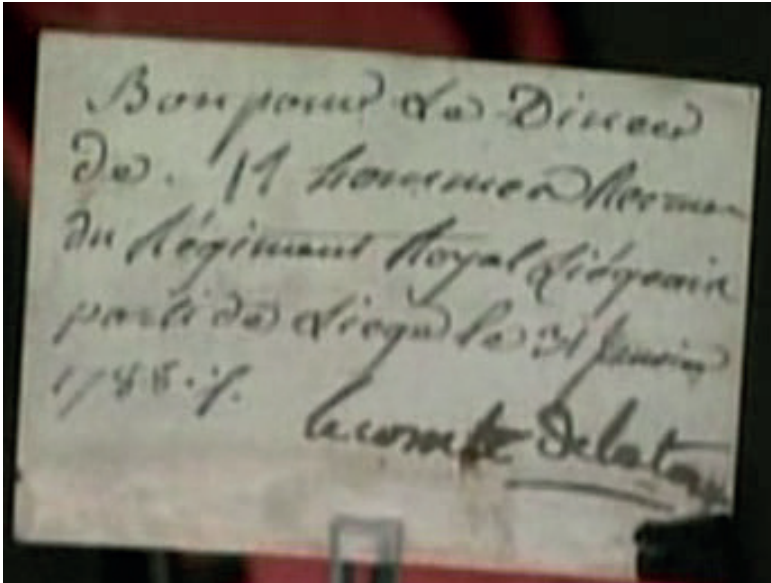 Bon pour Le Diner
de. 11 hommes Recrues
du Régiment Royal Liégeois
parti de Liége le 31 Janvier
1788./.
le comte Delatour